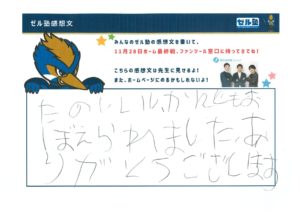 ゼル塾感想文
ゼル塾
みんなのゼル塾の感想文を書いて、
11月28日ホーム最終戦、ファンツール窓口に持ってきてね!
こちらの感想文は先生に見せるよ!
また、ホームページにのるかもしれないよ!
たのしい かんじもお
ぼえられました。あ
りがとうございます